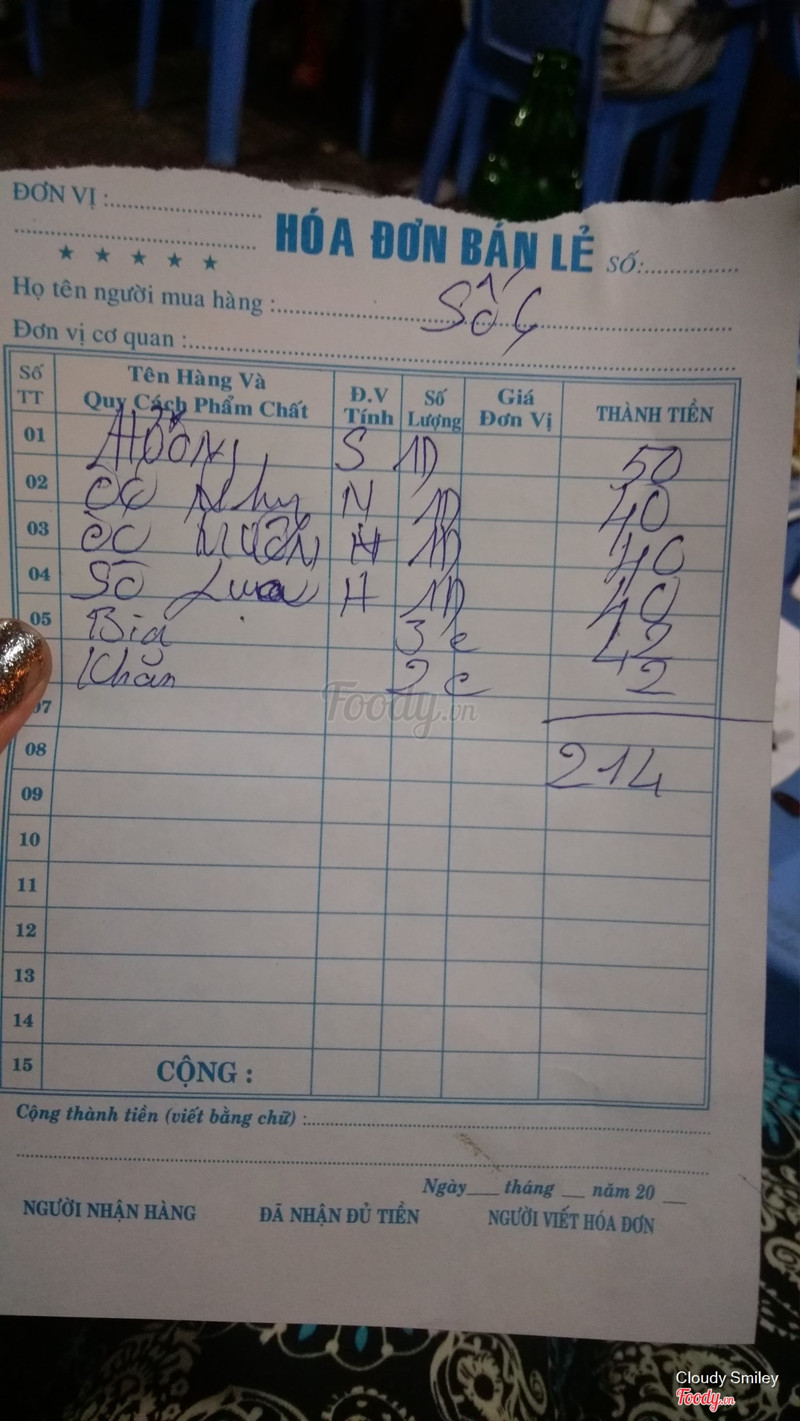 ĐƠN VỊ :
HÓA ĐƠN BÁN LẺ SỐ:
★ ★ ★ ★ ★
Họ tên người mua hàng : Số 4
Đơn vị cơ quan :
Số TT Tên Hàng Và Quy Cách Phẩm Chất Đ.V Tính Số Lượng Giá Đơn Vị THÀNH TIỀN
01 S 1D 50
02 ốc Nhy N 1D 40
03 ốc 1D 40
04 Sò Lụa H 1D 40
05 Bia 3 c 42
Khăn 2 c 2
07
08 214
09
10
11
12
13
14
15 CỘNG :
Cộng thành tiền (viết bằng chữ) :
Ngày tháng năm 20
NGƯỜI NHẬN HÀNG ĐÃ NHẬN ĐỦ TIỀN NGƯỜI VIẾT HÓA ĐƠN
Foody.vn
Cloudy Smiley
Foody.vn